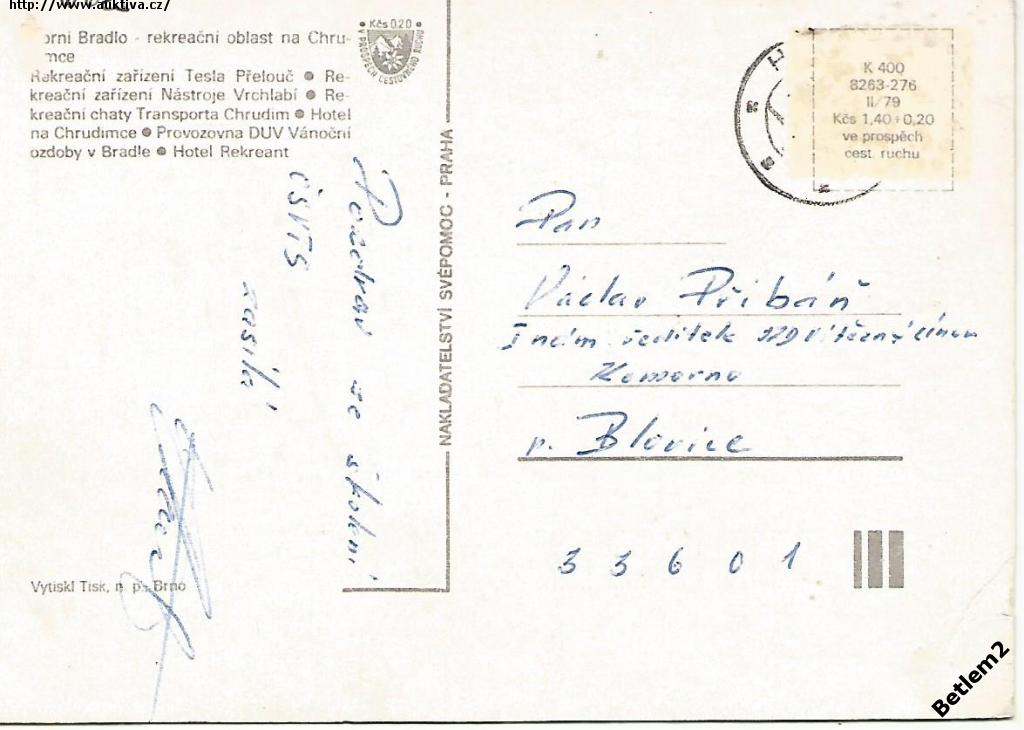 http://www.afiktiva.cz/
orní Bradlo - rekreační oblast na Chru-
mce
Rekreační zařízení Tesla Přelouč ● Re-
kreační zařízení Nástroje Vrchlabí ● Re-
kreační chaty Transporta Chrudim ● Hotel
na Chrudimce ● Provozovna DUV Vánoční
ozdoby v Bradle ● Hotel Rekreant
• Kčs 0.20 •
V PROSPĚCH CESTOVNÍHO RUCHU
Pozdrav ze školení
ČSVTS
zasílá
Vytiskl Tisk, n. p., Brno
NAKLADATELSTVÍ SVÉPOMOC - PRAHA
K 400
8263-276
II/79
Kčs 1,40+0,20
ve prospěch
cest. ruchu
Pan
Václav Přibáň
I nám. ředitele
Komorno
p. Blovice
33601
Betlem2